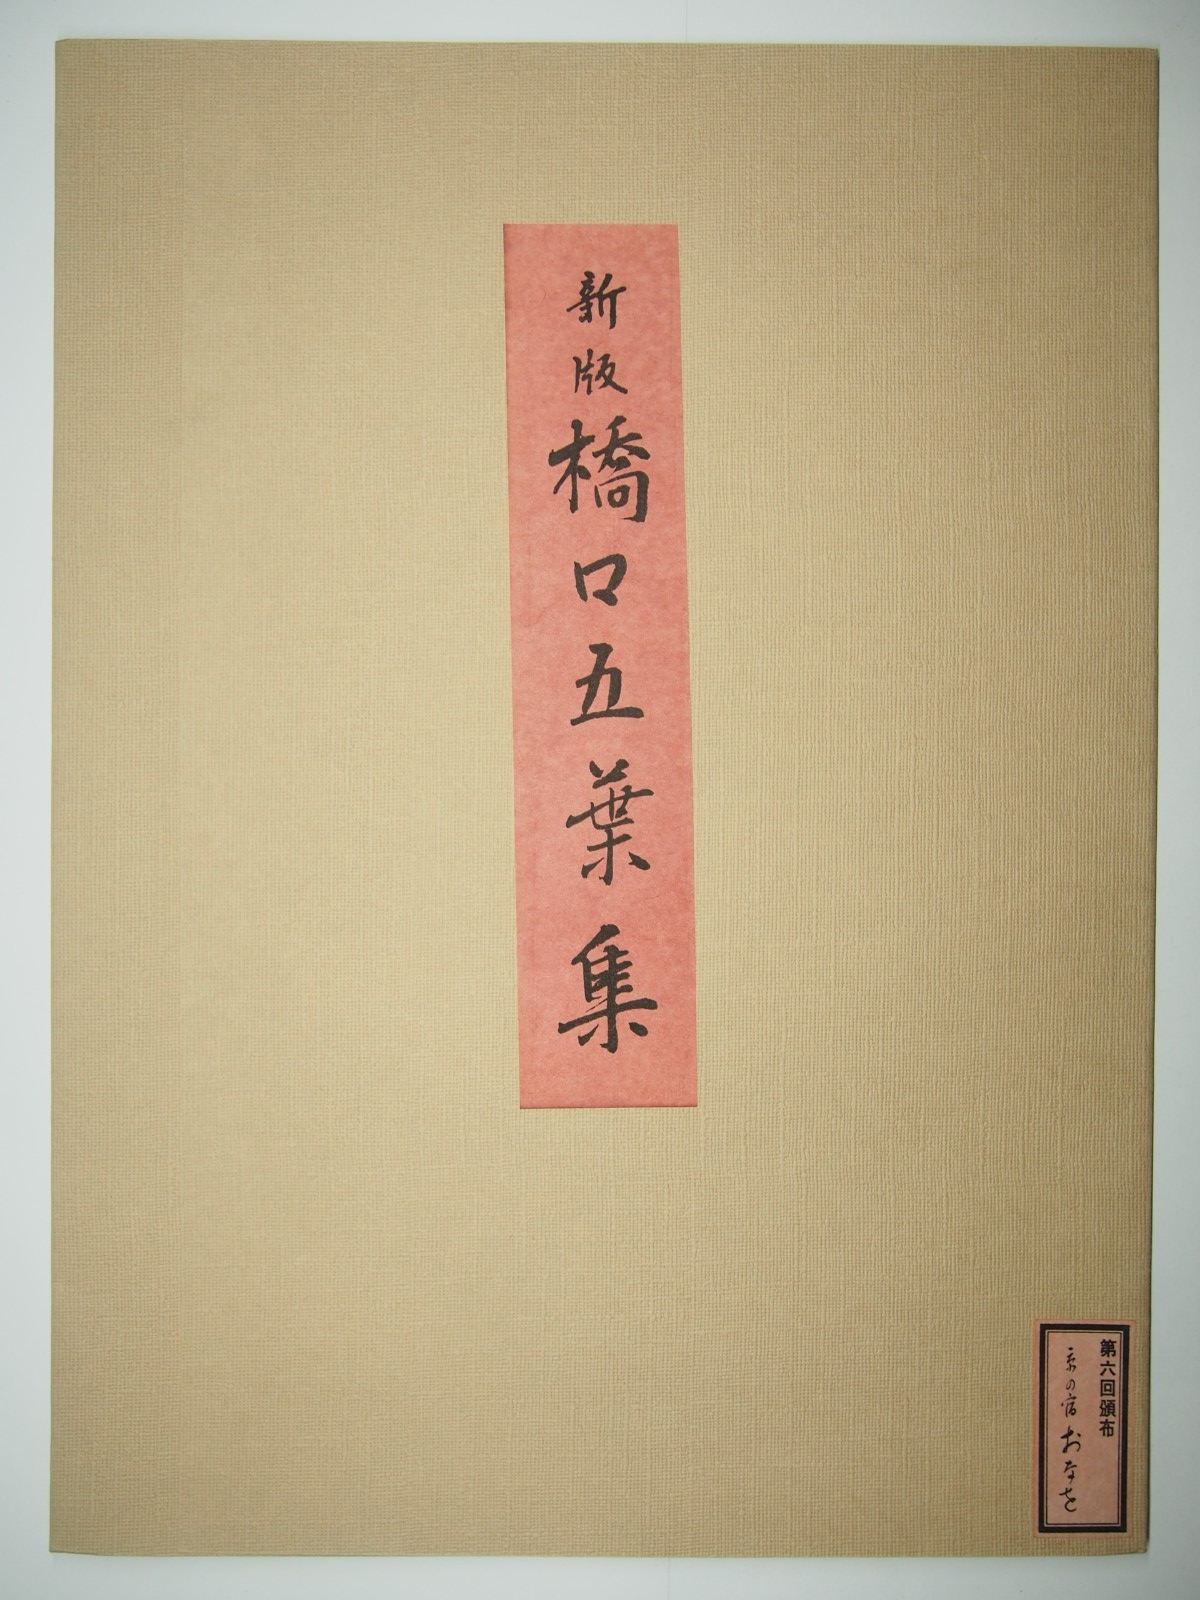 新版橋口五葉集
第六回頒布
京の宿 おなを